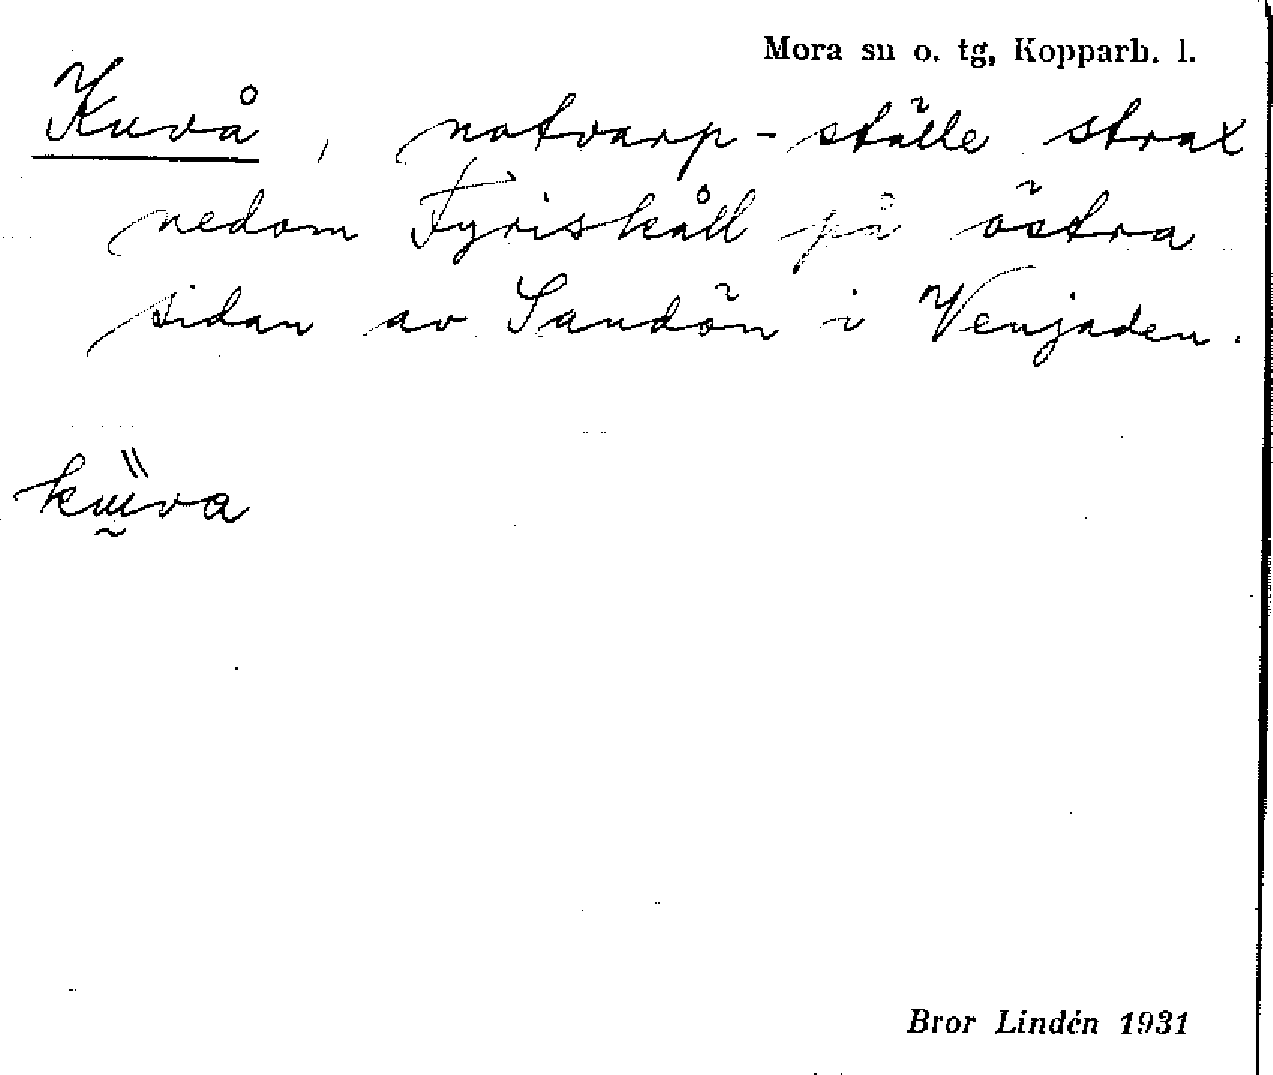 Mora sn o. tg, Kopparb. l.
Kuvå, notvarp-ställe strax
nedom Fyriskåll på östra
sidan av Sandön i Venjaden.
kɯ̈va
Bror Lindén 1931